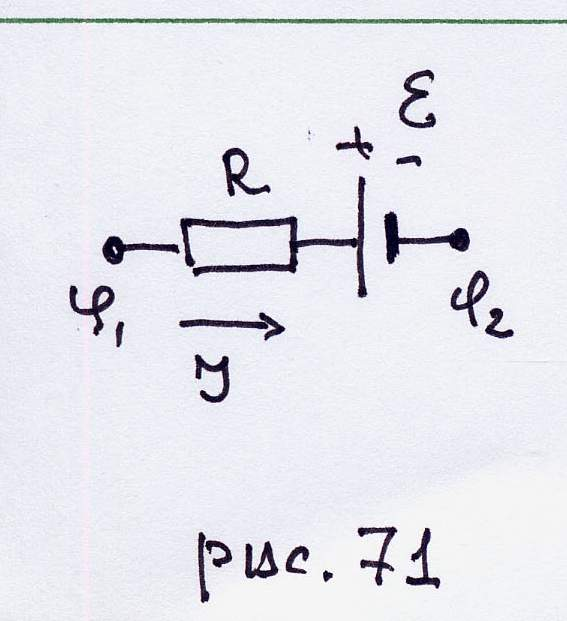 ℰ
+ -
R
φ₁ φ₂
I
рис. 71